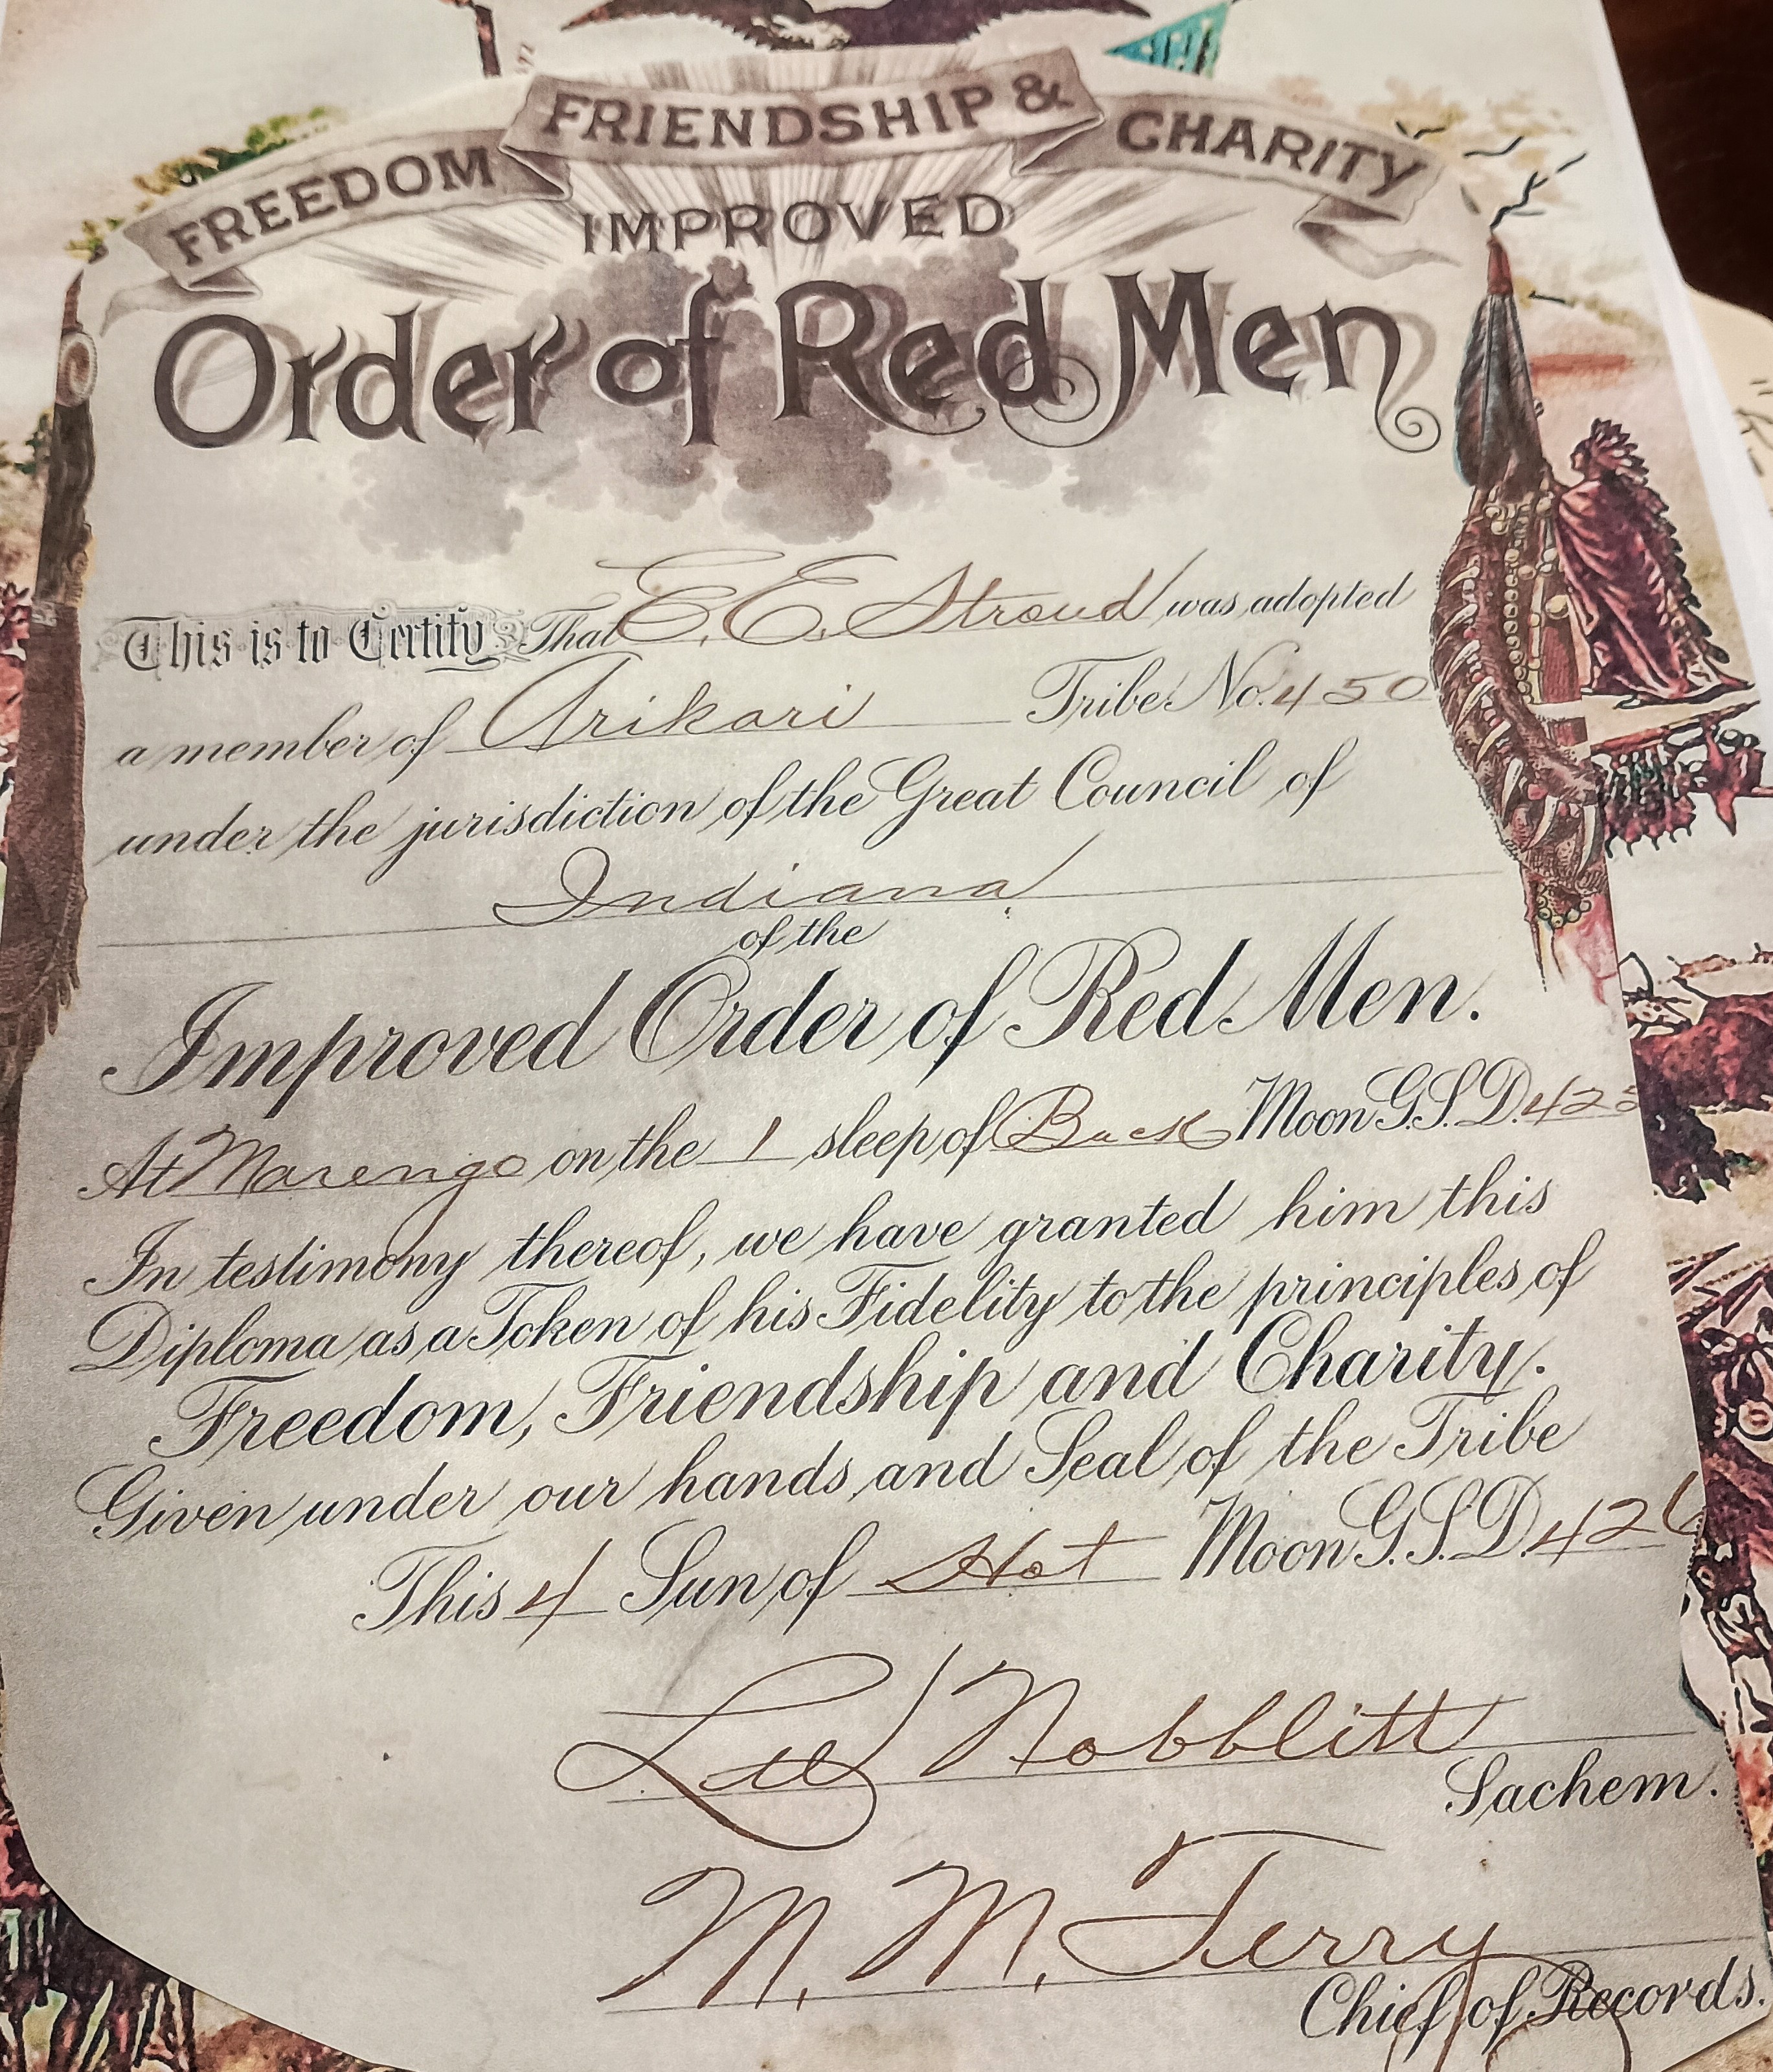 FREEDOM FRIENDSHIP & CHARITY
IMPROVED
Order of Red Men
This is to Certify That E. E. Stroud was adopted
a member of Arikari Tribe No. 450
under the jurisdiction of the Great Council of
Indiana
of the
Improved Order of Red Men.
At Marengo on the 1 sleep of Buck Moon G.S.D.
In testimony thereof, we have granted him this
Diploma as a Token of his Fidelity to the principles of
Freedom, Friendship and Charity.
Given under our hands and Seal of the Tribe
This 4 Sun of Hot Moon G.S.D. 426
Lee Nobblitt
Sachem.
M. M. Terry
Chief of Records.